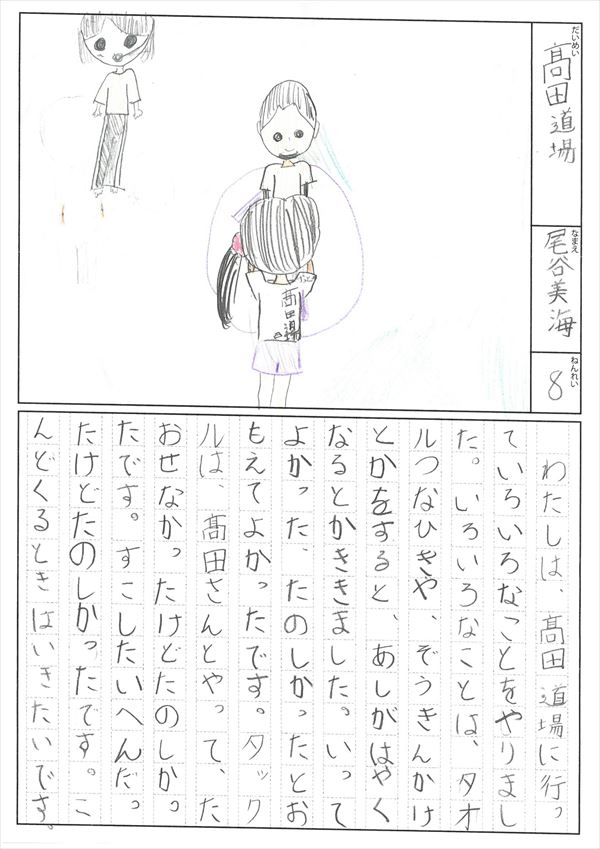 だいめい
髙田道場
なまえ
尾谷美海
ねんれい
8
髙田道場
わたしは、髙田道場に行っ
ていろいろなことをやりまし
た。いろいろなことは、タオ
ルつなひきや、ぞうきんかけ
とかをすると、あしがはやく
なるとかききました。いって
よかった、たのしかったとお
もえてよかったです。タック
ルは、髙田さんとやって、た
おせなかったけどたのしかっ
たです。すこしたいへんだっ
たけどたのしかったです。こ
んどくるときはいきたいです。